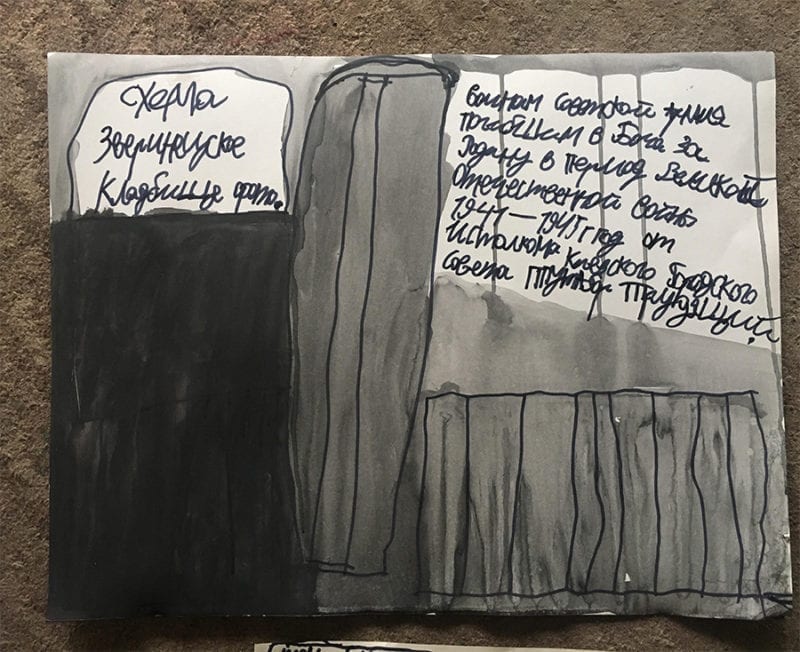 Схема
Зверинецуское
Кладбище фото.
Воинам Советской Армия
погибшим в Боча За
Родину в период Великой
Отечественной Войны
1941—1945 год от
Исполкома Киевского Городского
Совета Трудящий.